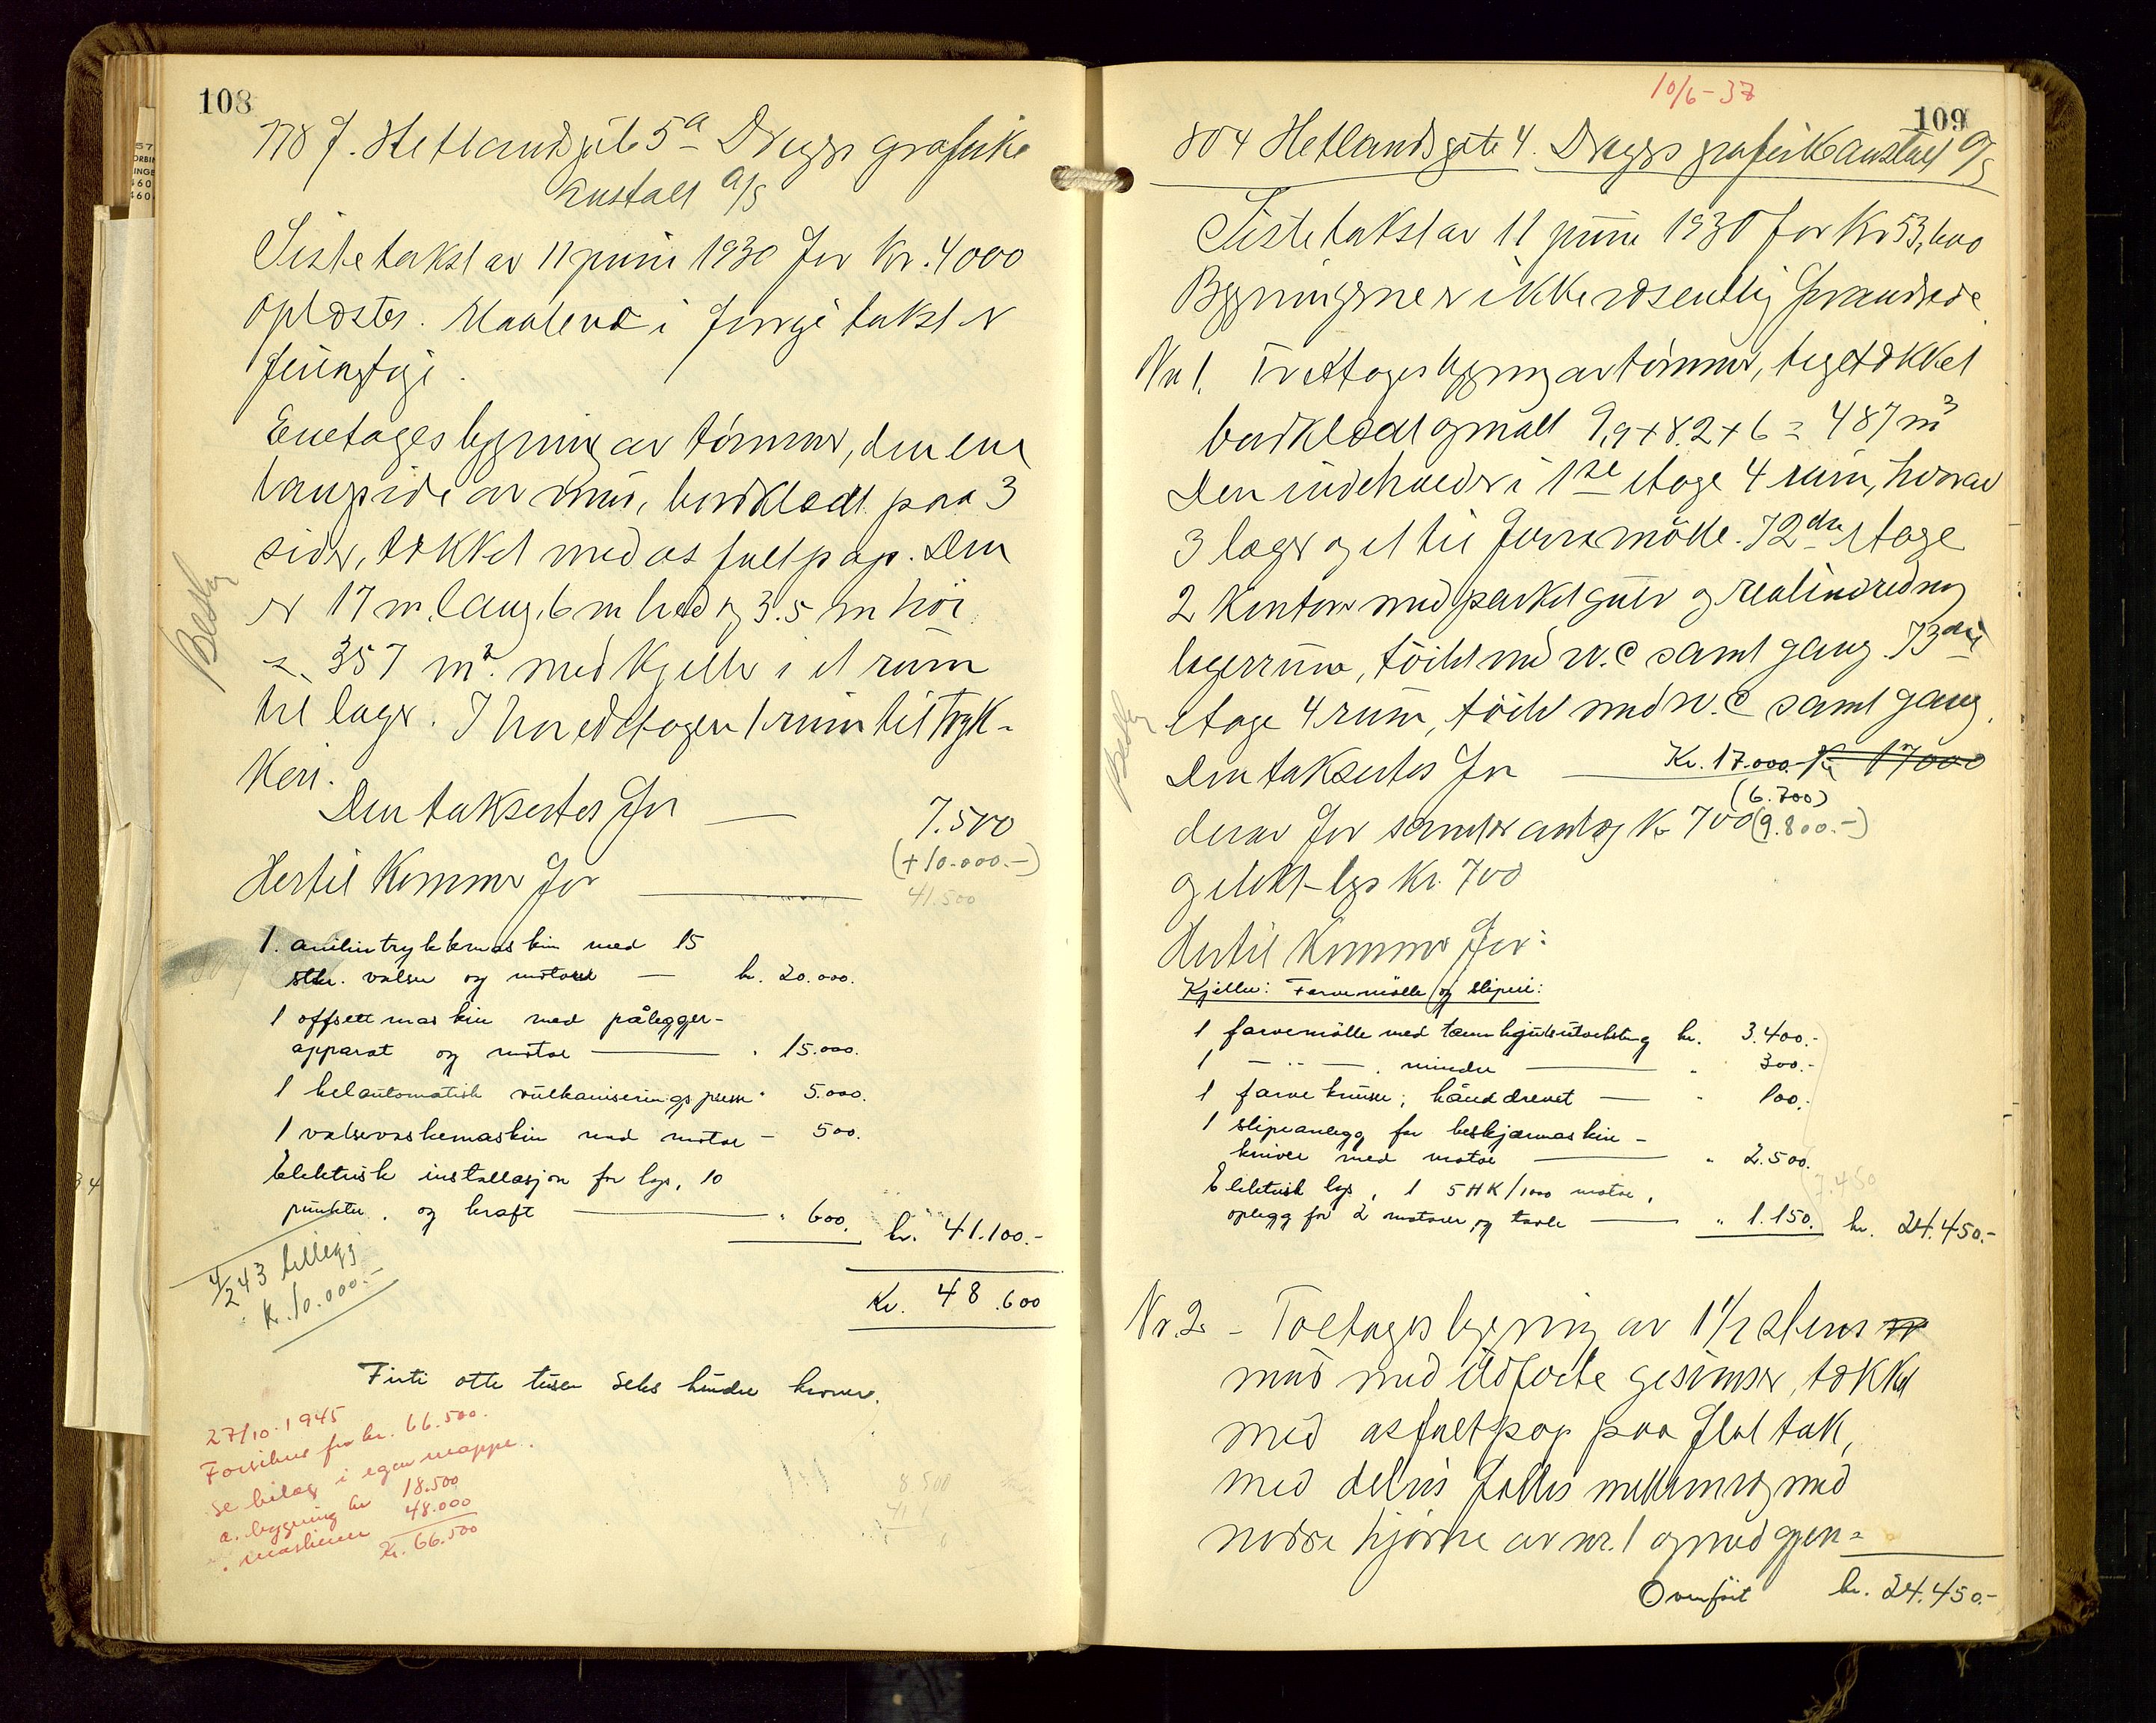 108
778 J. Hetlandsgt. 5a Dreyers grafiske
anstalt A/S
Siste takst av 11 juni 1930 for Kr. 4000
oplæstes. Maalene i forrige takst er
feilagtige.
Enetages bygning av tømmer, den ene
langside av mur, bordklædt paa 3
sider, tækket med asfaltpap. Den
er 17 m. lang, 6 m bred og 3.5 m høi
= 357 m³. med kjeller i et rum
til lager. I hovedetagen 1 rum til tryk-
keri.
Den takseres for — 7.500
(+10.000.-)
Hertil kommer for — 41.500
1. anilintrykkmaskin med 15
stkr. valser og motorer — kr. 20.000.
1 offsettmaskin med pålegger-
apparat og motor — " 15.000.
1 helautomatisk vulkaniseringspresse " 5.000.
1 valsevaskemaskin med motor - 500.
Elektrisk installasjon for lys, 10
punkter, og kraft — " 600. kr. 41.100.-
Kr. 48.600
4/2 43 tillegg
kr. 10.000.-
Firti otte tusen seks hundre kroner.
27/10. 1945
Forsikres for kr. 66.500.
Se bilag i egen mappe.
a. bygning kr 18.500
" maskiner 48.000
Kr. 66.500
Besty
10/6-37
109
804 Hetlandsgate 4. Dreyers grafiske anstalt A/S
Siste takst av 11 juni 1930 for Kr 53,600
Bygningerne er ikke væsentlig forandrede.
Nr 1. Treetages bygning av tømmer, teglt ækket
bordklædt og målt 9,9 + 8.2 + 6 = 487 m³
Den indeholder i 1ste etage 4 rum, hvorav
3 lager og et til farvemølle. I 2den etage
2 kontorer med parketgulv og
lagerrum, toilet med W.C samt gang. I 3die
etage 4 rum, toilet med W.C samt gang.
Den takseres for — Kr. 17.000.- Kr 17000
(6.700)
derav for kr 700 (9.800.-)
og elekt-lys Kr. 700
Hertil kommer for:
Kjeller: Farvemølle og sliperi:
1 farvemølle med tannhjulsutveksling kr. 3.400.-
1 — " — , mindre — " 300.-
1 farveknuser, hånddrevet — " 100.-
1 slipeanlegg for beskjærmaskin-
kniver med motor — " 2.500.
7.450
Elektrisk lys, 1 5 HK/1000 motor,
oplegg for 2 motorer og tavle — " 1.150. kr. 24.450.-
Nr. 2. - Toetages bygning av 1½ stens
mur med utførte gesimser, tækket
med asfaltpap paa flat tak,
med delvis fælles mellemvæg med
nordre hjørne av nr. 1 og med gjen-
Overført kr. 24.450.-